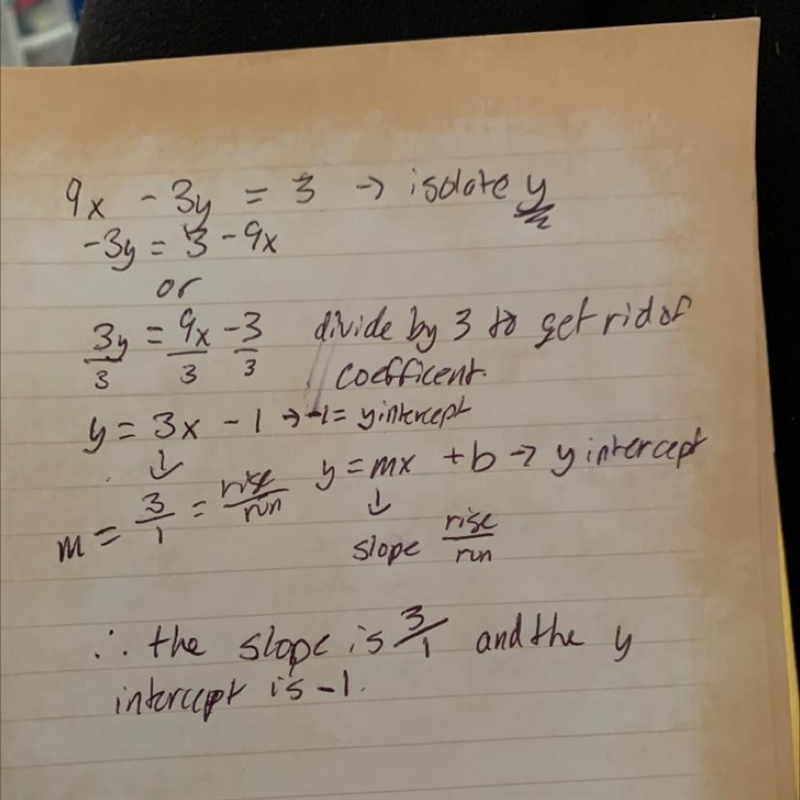 9x - 3y = 3 → isolate y
-3y = 3 - 9x
or
3y/3 = 9x/3 - 3/3 divide by 3 to get rid of
coefficent.
y = 3x - 1 → -1 = y intercept
↓
m = 3/1 = rise/run y = mx + b → y intercept
↓
slope rise/run
∴ the slope is 3/1 and the y
intercept is -1.